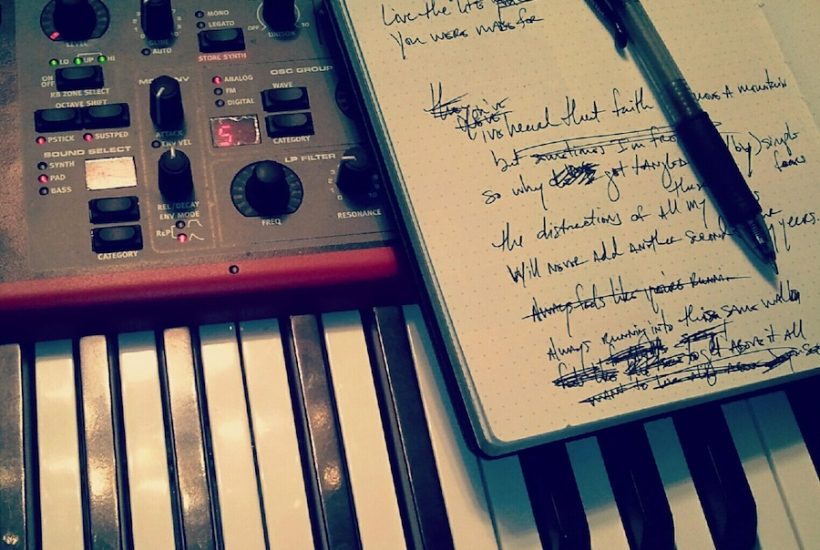 LEVEL
MONO
LEGATO
AUTO
STORE SYNTH
UNISON
LO UP HI
ON
OFF
KB ZONE SELECT
OCTAVE SHIFT
PSTICK SUSTPED
SOUND SELECT
SYNTH
PAD
BASS
CATEGORY
MOD ENV
ATTACK
ENV VEL
REL/DECAY
ENV MODE
REP
ANALOG
FM
DIGITAL
OSC GROUP
WAVE
CATEGORY
5
LP FILTER
FREQ
RESONANCE
10
Live the life
You were made for
I've heard that faith move a mountain
but sometimes I'm
so why get tangled (by) single
the distractions of all my fears
Will never add another second years.
Always feels like you're Runnin
Always Running into these same walls
to get above it all